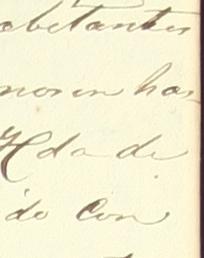 abitantes
nos en ha-
Hda de
do con